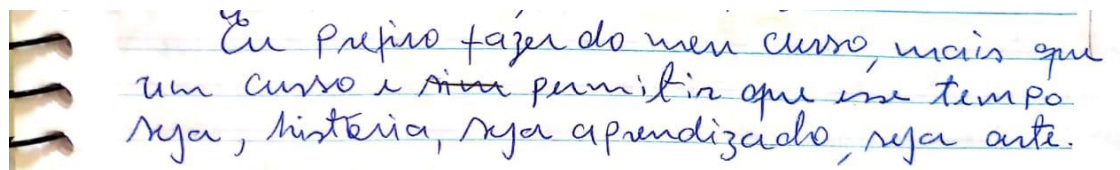 Eu prefiro fazer do meu curso, mais que
um curso e sim permitir que esse tempo
seja, história, seja aprendizado, seja arte.